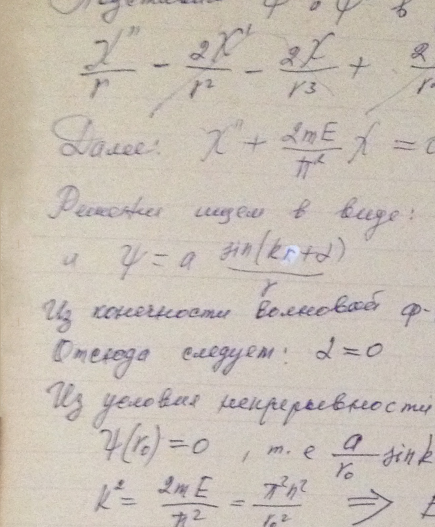 Подставим ψ и ψ' в
χ''/r − 2χ'/r² − 2χ/r³ + 2
Далее: χ'' + 2mE/ħ² χ = 0
Решения ищем в виде:
и ψ = a sin(kr+α)/r
Из конечности волновой ф-
Отсюда следует: α=0
Из условия непрерывности
ψ(r₀) = 0 , т.е a/r₀ sin k
k² = 2mE/ħ² = π²n²/r₀² ⇒ E